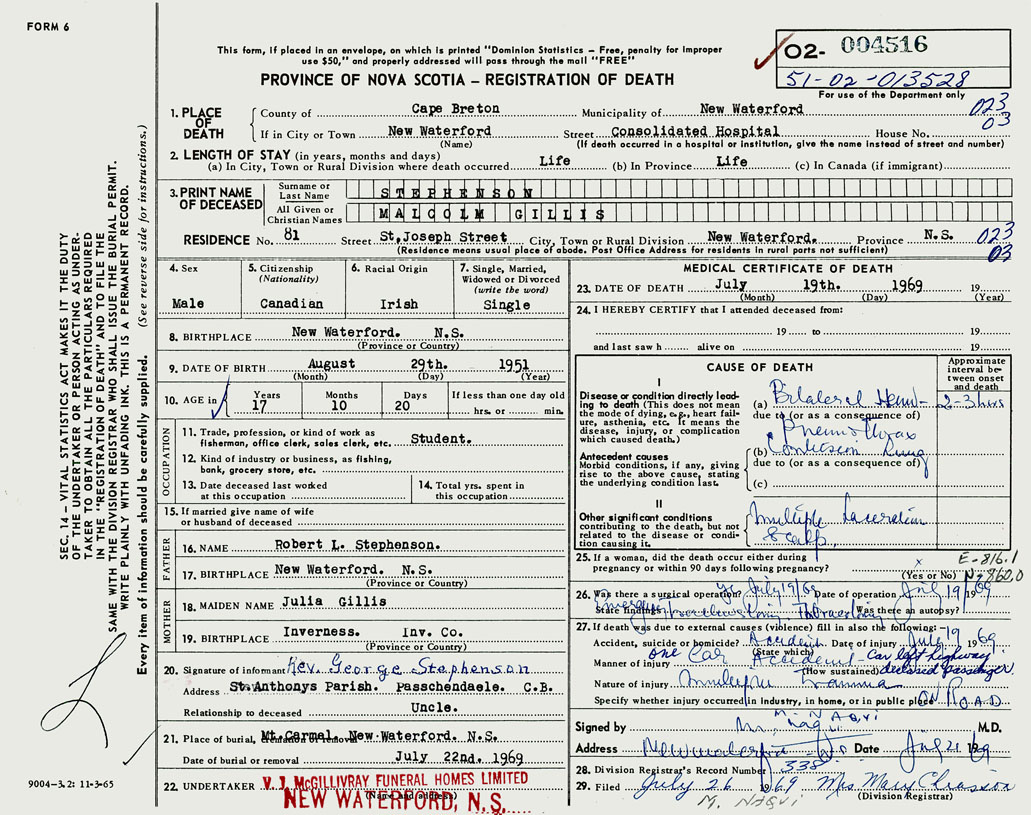 FORM 6
This form, if placed in an envelope, on which is printed "Dominion Statistics – Free, penalty for improper
use $50," and properly addressed will pass through the mail "FREE"
PROVINCE OF NOVA SCOTIA – REGISTRATION OF DEATH
O2- 004516
51-02-013528
For use of the Department only
1. PLACE OF DEATH
County of Cape Breton Municipality of New Waterford 023
If in City or Town New Waterford Street Consolidated Hospital House No. 03
(Name) (If death occurred in a hospital or institution, give the name instead of street and number)
2. LENGTH OF STAY (in years, months and days)
(a) In City, Town or Rural Division where death occurred Life (b) In Province Life (c) In Canada (if immigrant)
3. PRINT NAME OF DECEASED
Surname or Last Name STEPHENSON
All Given or Christian Names MALCOLM GILLIS
RESIDENCE No. 81 Street St,Joseph Street City, Town or Rural Division New Waterford. Province N.S. 023
(Residence means usual place of abode. Post Office Address for residents in rural parts not sufficient) 03
4. Sex
Male
5. Citizenship
(Nationality)
Canadian
6. Racial Origin
Irish
7. Single, Married,
Widowed or Divorced
(write the word)
Single
8. BIRTHPLACE New Waterford. N.S.
(Province or Country)
9. DATE OF BIRTH August 29th. 1951
(Month) (Day) (Year)
10. AGE in Years 17 Months 10 Days 20 If less than one day old
hrs. or min.
OCCUPATION
11. Trade, profession, or kind of work as
fisherman, office clerk, sales clerk, etc. Student.
12. Kind of industry or business, as fishing,
bank, grocery store, etc.
13. Date deceased last worked
at this occupation
14. Total yrs. spent in
this occupation
15. If married give name of wife
or husband of deceased
FATHER
16. NAME Robert L. Stephenson.
17. BIRTHPLACE New Waterford. N.S.
(Province or Country)
MOTHER
18. MAIDEN NAME Julia Gillis
19. BIRTHPLACE Inverness. Inv. Co.
(Province or Country)
20. Signature of informant Rev. George Stephenson
Address St. Anthonys Parish. Passchendaele. C.B.
Relationship to deceased Uncle.
21. Place of burial, cremation or removal Mt. Carmel. New Waterford. N.S.
Date of burial or removal July 22nd. 1969
22. UNDERTAKER V. J. McGILLIVRAY FUNERAL HOMES LIMITED
NEW WATERFORD, N.S.
(Name and address)
MEDICAL CERTIFICATE OF DEATH
23. DATE OF DEATH July 19th. 1969 19
(Month) (Day) (Year)
24. I HEREBY CERTIFY that I attended deceased from:
19 to 19
and last saw h alive on 19
CAUSE OF DEATH
Approximate
interval be-
tween onset
and death
I
Disease or condition directly lead-
ing to death (This does not mean
the mode of dying, e.g., heart fail-
ure, asthenia, etc. It means the
disease, injury, or complication
which caused death.)
(a) Bilateral Hemo- 2-3 hrs
due to (or as a consequence of)
Pneumothorax
Antecedent causes
Morbid conditions, if any, giving
rise to the above cause, stating
the underlying condition last.
(b) Contusion Lung
due to (or as a consequence of)
(c)
II
Other significant conditions
contributing to the death, but not
related to the disease or condi-
tion causing it.
multiple Laceration
Scalp.
25. If a woman, did the death occur either during
pregnancy or within 90 days following pregnancy? x
(Yes or No)
E-816.1
N-860.0
26. Was there a surgical operation? yes July 19/69 Date of operation July 19 1969
State findings Emergency Tracheostomy, Thoracostomy Was there an autopsy?
27. If death was due to external causes (violence) fill in also the following:—
Accident, suicide or homicide? Accident Date of injury July 19 1969
(State which)
Manner of injury one Car Accident - Car left highway
(How sustained) deceased passenger.
Nature of injury Multiple Trauma
Specify whether injury occurred in industry, in home, or in public place ON ROAD
Signed by M. NAQVI M.D.
Address New waterford - N-S Date July 21 1969
28. Division Registrar's Record Number 338
29. Filed July 26 1969 Mrs Mary Chiasson
M. NAQVI (Division Registrar)
SEC. 14 – VITAL STATISTICS ACT MAKES IT THE DUTY
OF THE UNDERTAKER OR PERSON ACTING AS UNDER-
TAKER TO OBTAIN ALL THE PARTICULARS REQUIRED
IN THE "REGISTRATION OF DEATH" AND TO FILE THE
SAME WITH THE DIVISION REGISTRAR WHO SHALL ISSUE THE BURIAL PERMIT.
WRITE PLAINLY WITH UNFADING INK. THIS IS A PERMANENT RECORD.
Every item of information should be carefully supplied. (See reverse side for instructions.)
9004-3.2: 11-3-65